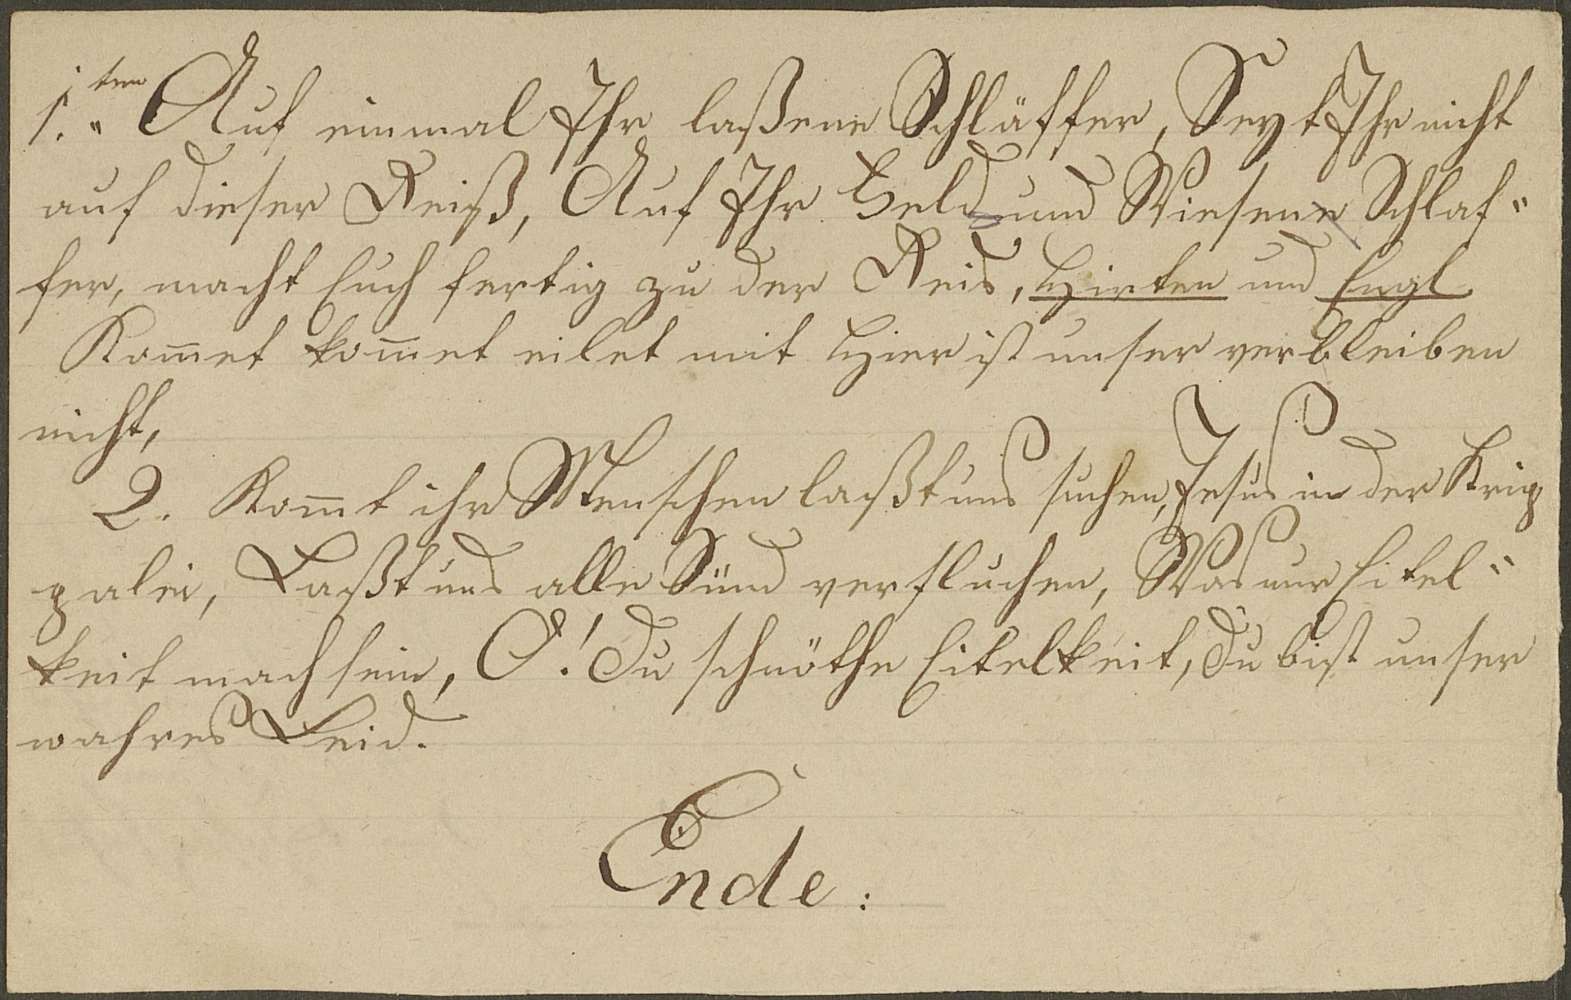 1.ten Auf einmal Ihr laßene Schläffer, Seyt Ihr nicht
auf dieser Reiß, Auf Ihr Feld und Wiesene Schlaf"
fer, macht Euch fertig zu der Reis, Hirten und Engl
Kom̅et kom̅et eilet mit Hier ist unser verbleiben
nicht,
2. Kom̅t ihr Menschen laßt uns suchen, Jesus in der Krip
palein, Laßt uns alle Sünd verfluchen, Was nur Eitel"
keit mach sein, O! Du schnöthe Eitelkeit, Du bist unser
wahres Leid.
Ende: